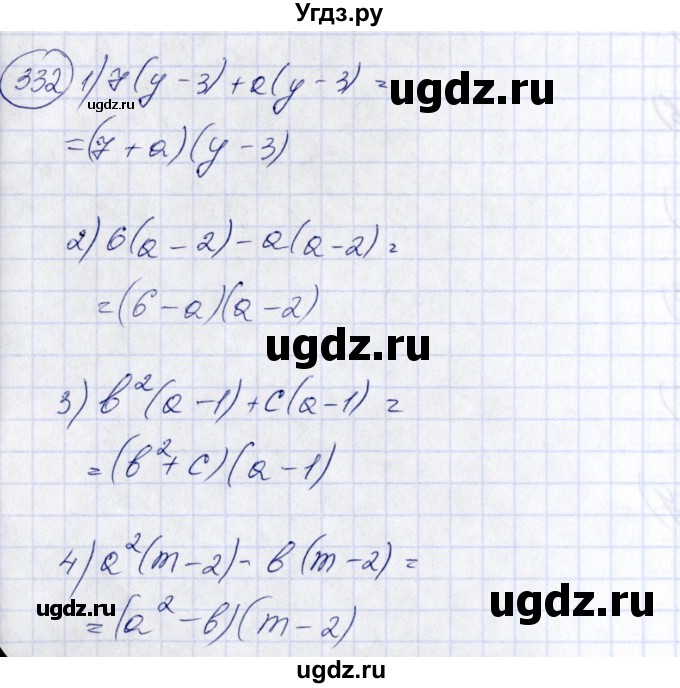 Угдз.ру
332 1) 7(y - 3) + a(y - 3) =
ugdz.ru
ugdz.ru
= (7 + a)(y - 3)
2) 6(a - 2) - a(a - 2) =
= (6 - a)(a - 2)
ugdz.ru
3) b²(a - 1) + c(a - 1) =
= (b² + c)(a - 1)
4) a²(m - 2) - b(m - 2) =
ugdz.ru
ugdz.ru
= (a² - b)(m - 2)
ugdz.ru